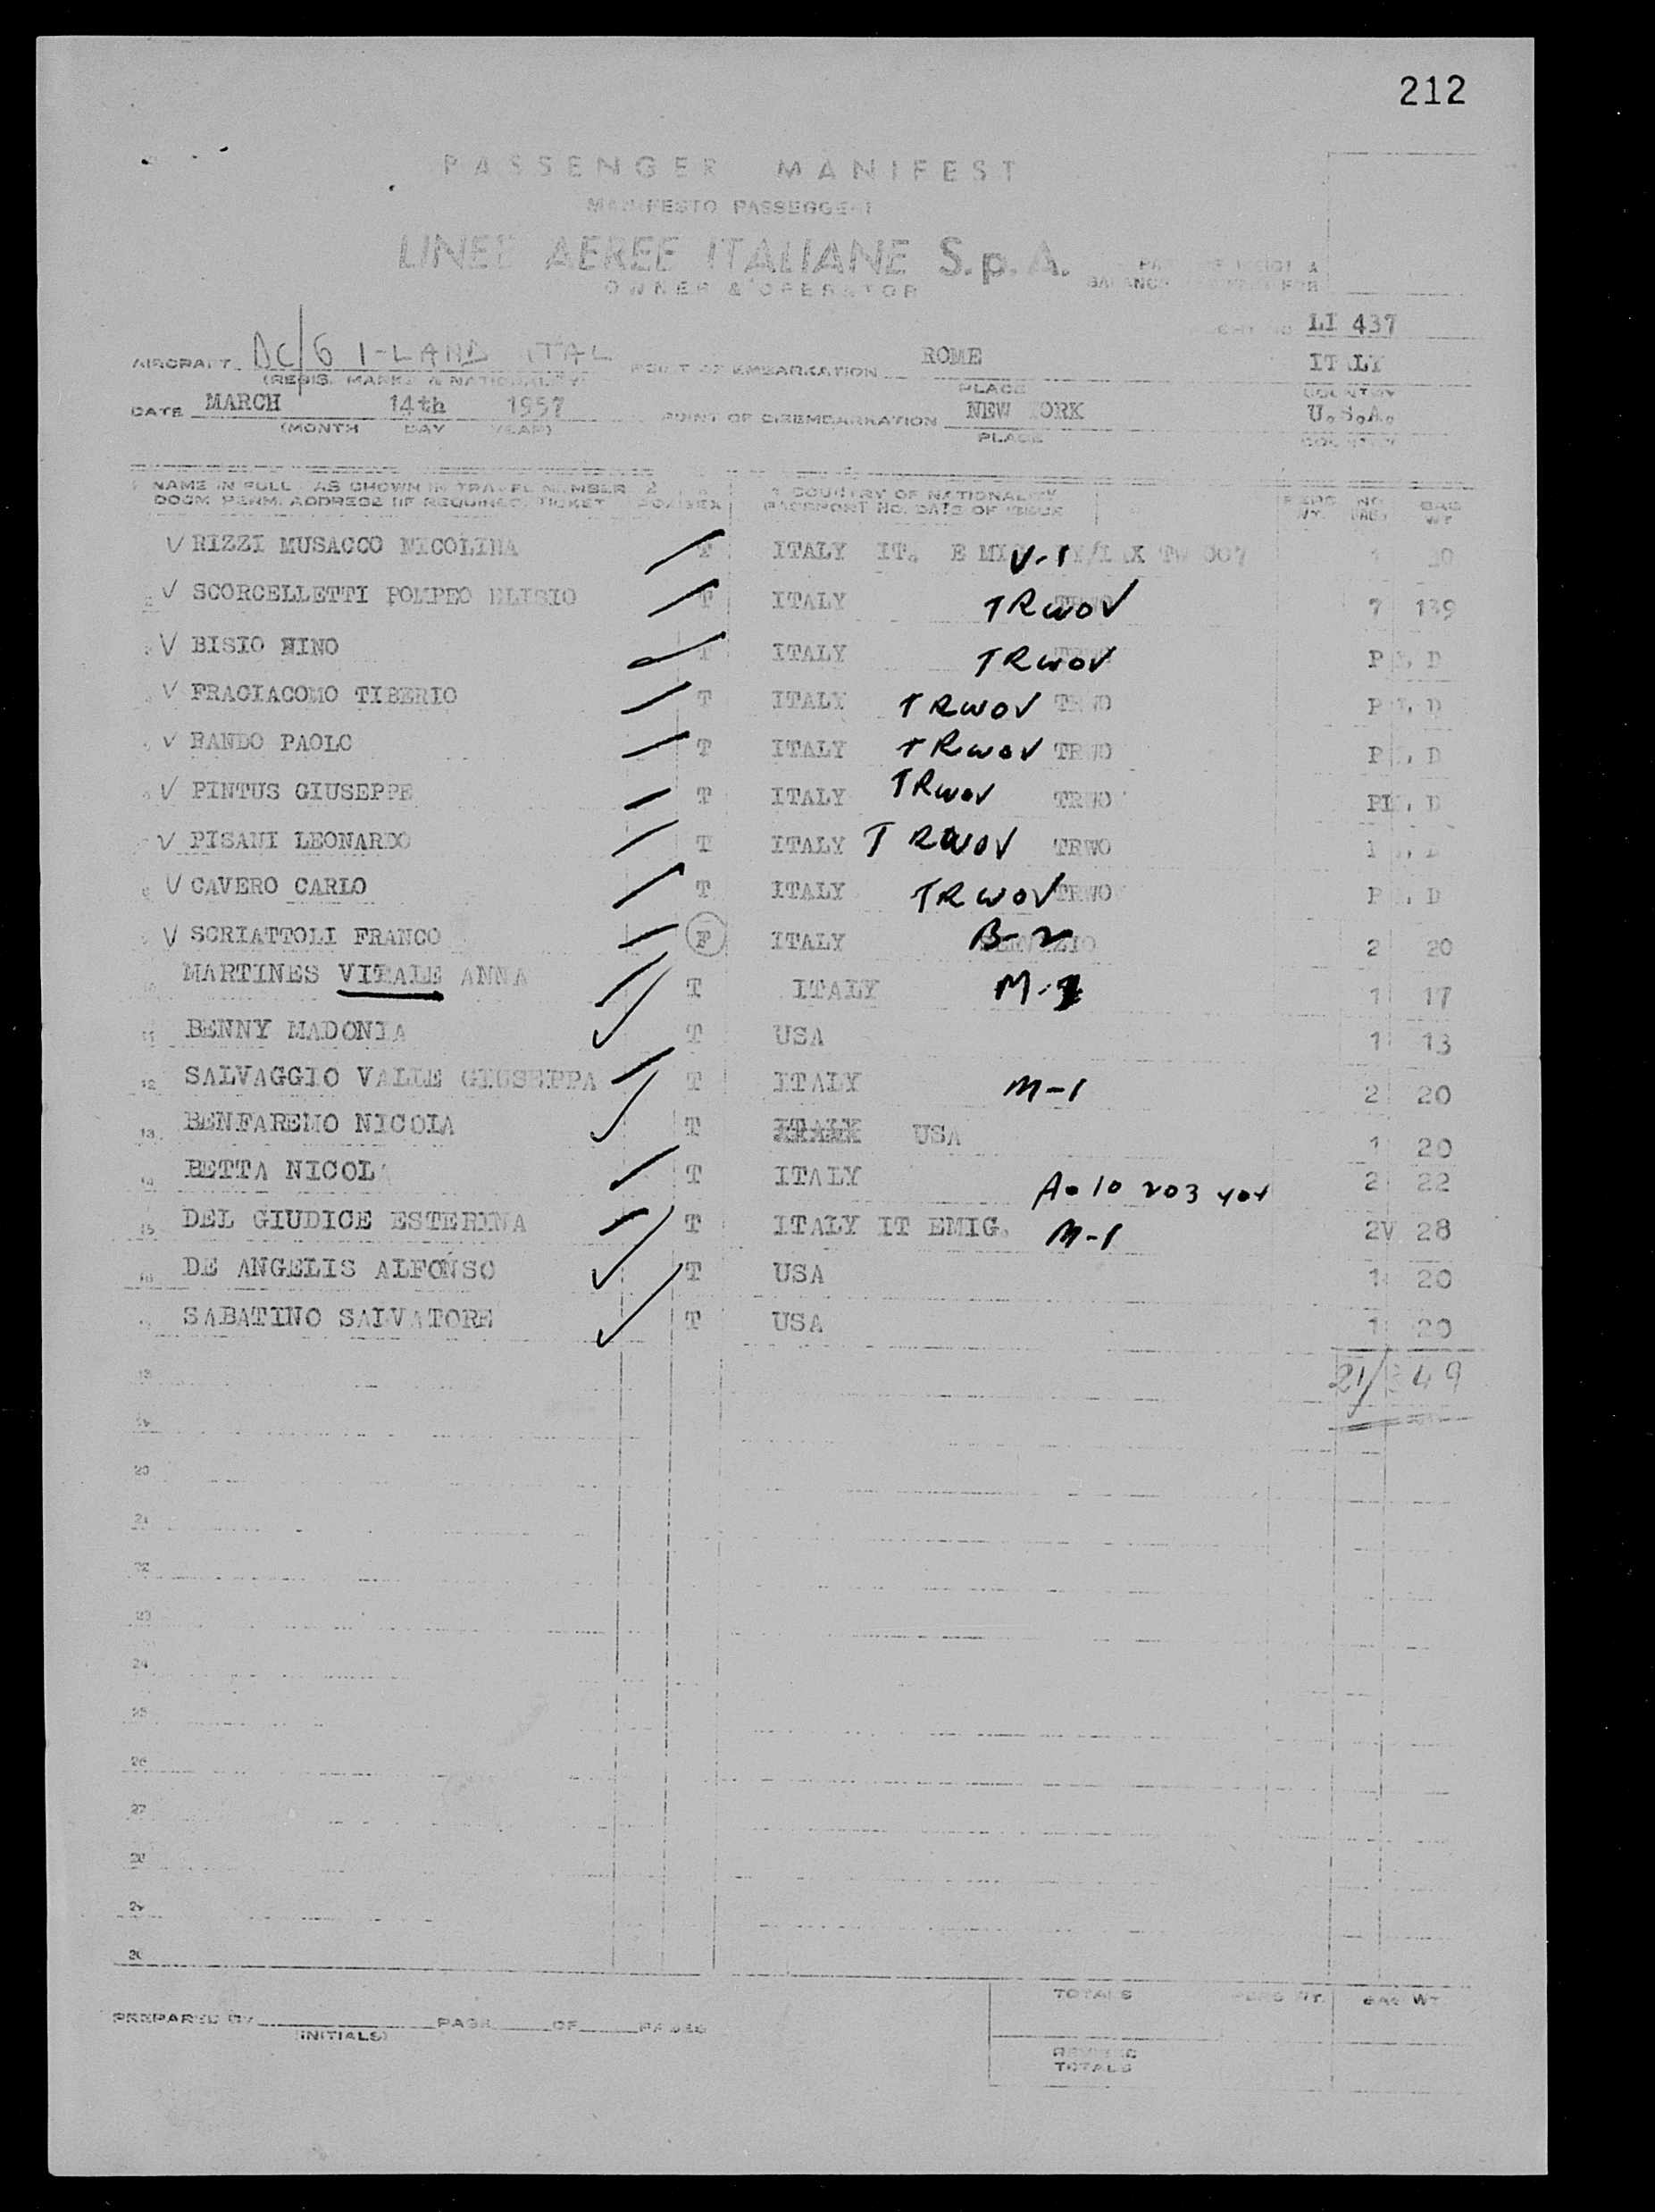 212
PASSENGER MANIFEST
MANIFESTO PASSEGGERI
LINEE AEREE ITALIANE S.p.A.
OWNER & OPERATOR
BALANCE FOR
LI 437
AIRCRAFT DC/6 I-LAND ITAL POINT OF EMBARKATION ROME ITALY
(REGIS. MARKS & NATIONALITY) PLACE COUNTRY
DATE MARCH 14th 1957 POINT OF DISEMBARKATION NEW YORK U.S.A.
(MONTH DAY YEAR) PLACE COUNTRY
NAME IN FULL AS SHOWN IN TRAVEL NUMBER 2 COUNTRY OF NATIONALITY NO. BAG
DOCM. PERM. ADDRESS (IF REQUIRED) TICKET SEX PASSPORT NO. DATE OF ISSUE WT. WT
V RIZZI MUSACCO NICOLINA T ITALY IT. V-1 1
V SCORCELLETTI POMPEO ELISIO T ITALY TRWOV 7 139
V BISIO NINO T ITALY TRWOV
V FRAGIACOMO TIBERIO T ITALY TRWOV TRWO
V BANDO PAOLO T ITALY TRWOV TRWO
V PINTUS GIUSEPPE T ITALY TRWOV TRWO
V PISANI LEONARDO T ITALY TRWOV TRWO
V CAVERO CARLO T ITALY TRWOV TRWO
V SCRIATTOLI FRANCO F ITALY B-2 2 20
MARTINES VITALE ANNA T ITALY 1 17
11 BENNY MADONIA T USA 1 13
12 SALVAGGIO VALLE GIUSEPPA T ITALY M-1 2 20
13. BENFAREMO NICOLA T ITALY USA 1 20
14 BETTA NICOLA T ITALY A-10 203 404 2 22
15 DEL GIUDICE ESTERINA T ITALY IT EMIG. M-1 2V 28
16 DE ANGELIS ALFONSO T USA 1 20
SABATINO SALVATORE T USA 1 20
18 21/349
19
20
21
22
23
24
25
26
27
28
29
30
PREPARED BY PAGE OF PAGES TOTALS PERS WT. BAG WT.
(INITIALS)
REVISED
TOTALS